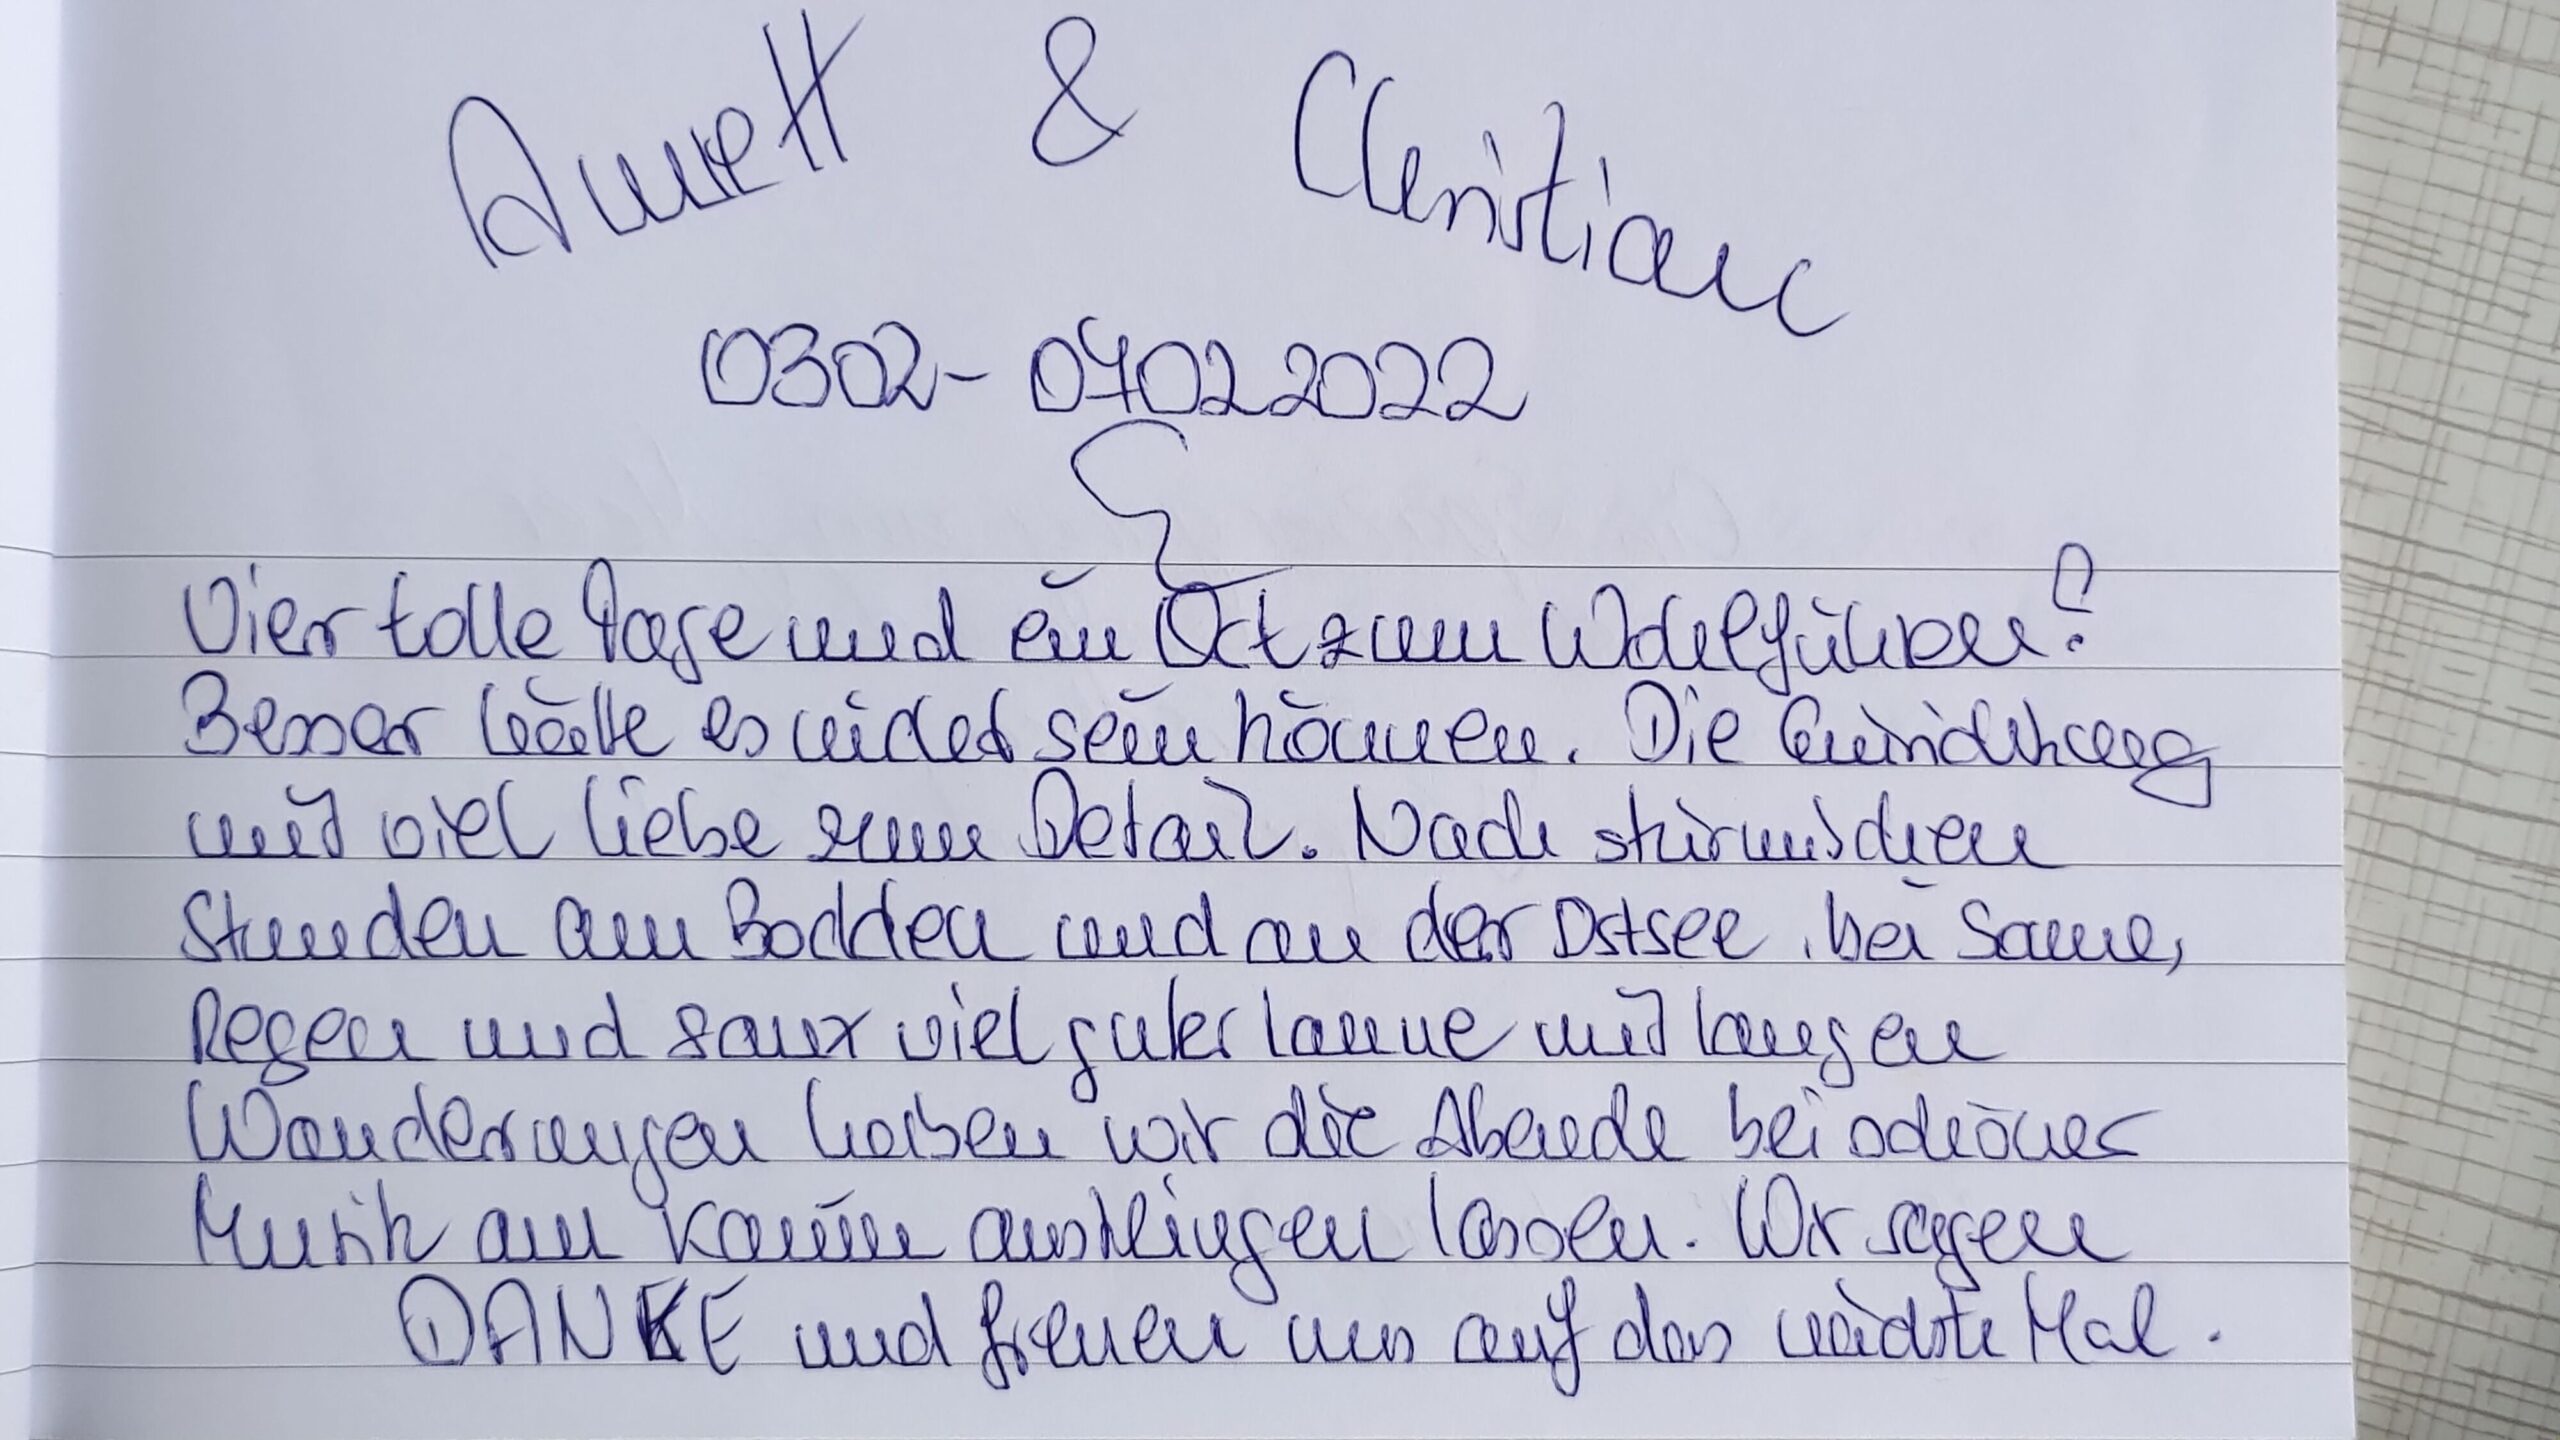 Annett & Christian
0302-07022022
Vier tolle Tage und ein Ort zum Wohlfühlen!
Besser hätte es nicht sein können. Die Einrichtung
mit viel Liebe zum Detail. Nach stürmischen
Stunden am Bodden und an der Ostsee, bei Sonne,
Regen und ganz viel guter Laune mit langen
Wanderungen haben wir die Abende bei schöner
Musik am Kamin ausklingen lassen. Wir sagen
DANKE und freuen uns auf das nächste Mal.